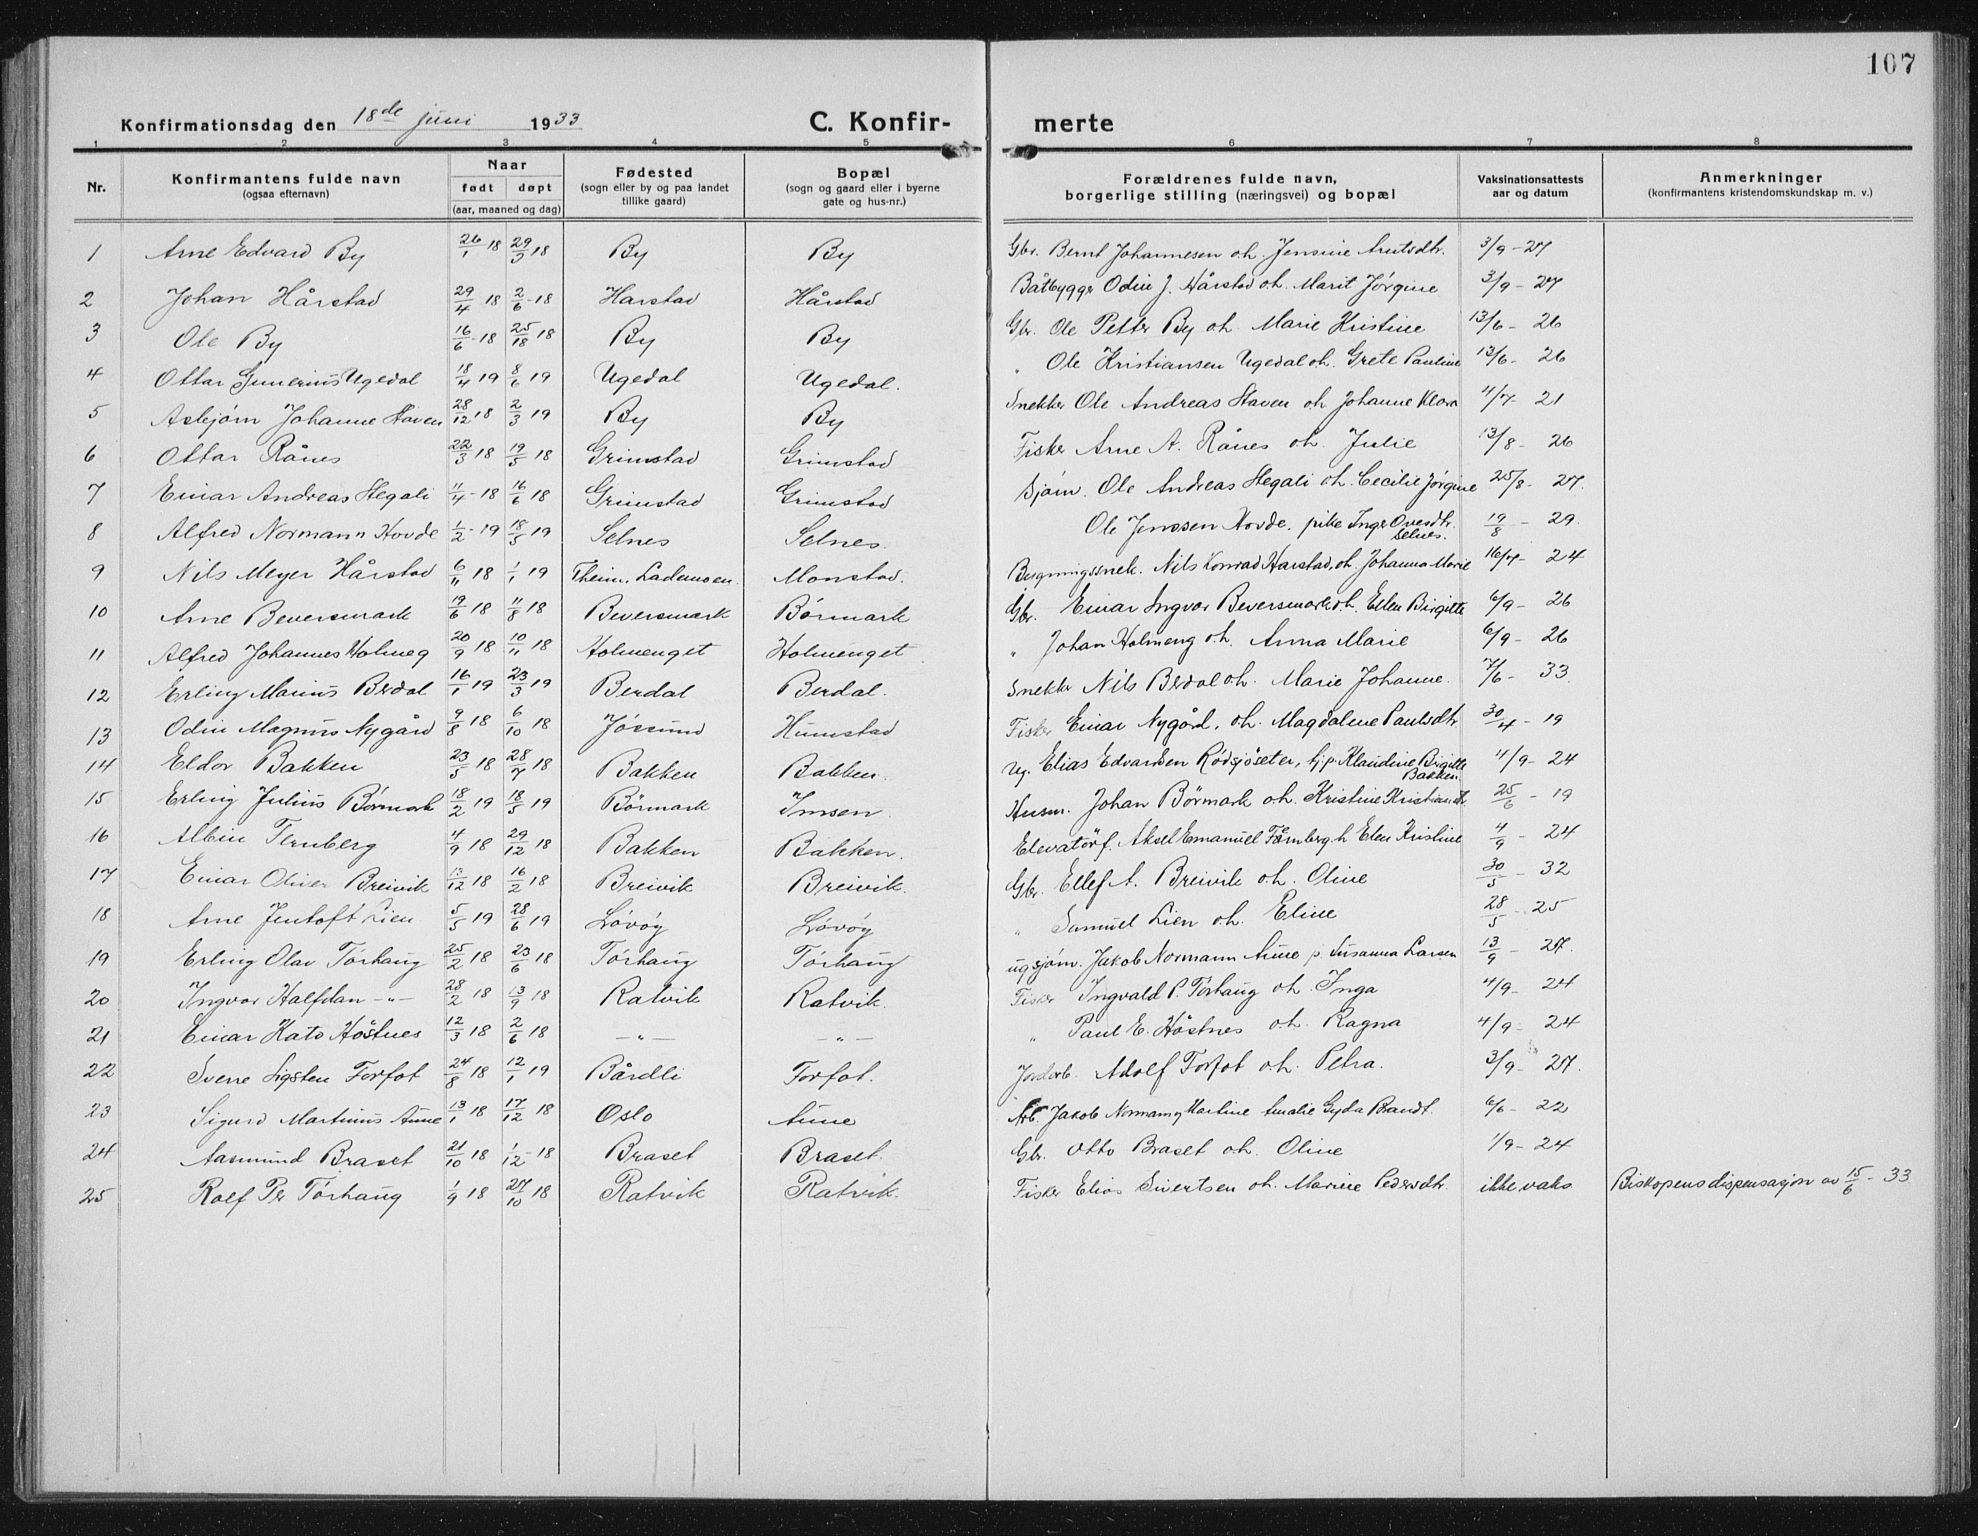 107
Konfirmationsdag den 18de juni 1933 C. Konfir- merte
1 2 3 4 5 6 7 8
Nr. Konfirmantens fulde navn (ogsaa efternavn) Naar født døpt (aar, maaned og dag) Fødested (sogn eller by og paa landet tillike gaard) Bopæl (sogn og gaard eller i byerne gate og hus-nr.) Forældrenes fulde navn, borgerlige stilling (næringsvei) og bopæl Vaksinationsattests aar og datum Anmerkninger (konfirmantens kristendomskundskap m. v.)
1 Arne Edvard By 26/1 18 29/3 18 By By Gbr. Bernt Johannesen oh. Jensine Arntsdtr. 3/9-27
2 Johan Hårstad 29/4 18 2/6-18 Harstad Hårstad Båtbygger Odin J. Hårstad oh. Marit Jørgine 3/9-27
3 Ole By 16/6-18 25/18 18 By By Gbr. Ole Petter By oh. Marie Kristine 13/6-26
4 Ottar Gunerius Ugedal 18/4 19 8/6 19 Ugedal Ugedal. " Ole Kristiansen Ugedal oh. Grete Pauline 13/6-26
5 Asbjørn Johanne Haven 28/12 18 2/3 19 By By Snekker Ole Andreas Haven oh Johanne Klara 4/7-21
6 Ottar Rånes 22/3 18 19/5 18 Grimstad Grimstad Fisker Arne A. Rånes oh. Julie 13/8-26
7 Einar Andreas Hegali 11/4-18 16/6 18 Grimstad Grimstad Sjøm. Ole Andreas Hegali oh. Cecilie Jørgine 25/8-27.
8 Alfred Normann Hovde 1/2-19 18/5 19 Selnes Selnes. Ole Jenssen Hovde. pike Inger Ovesdtr. Selnes. 19/8-29.
9 Nils Meyer Hårstad 6/11 18 1/1 19 Theim. Lademoen. Monstad. Bygningssnek. Nils Konrad Harstad, oh. Johanna Marie 16/7-24
10 Arne Beversmark 19/6 18 11/8 18 Beversmark Børmark Gbr. Einar Ingvar Beversmark oh. Ellen Birgitte 6/9-26
11 Alfred Johannes Holmeg 20/9 18 10/11 18 Holmenget Holmenget " Johan Holmeng oh. Anna Marie 6/9-26
12 Erling Marius Berdal 16/1 19 23/3 19 Berdal Berdal. Snekker Nils Berdal oh. Marie Johanne. 7/6-33.
13 Odin Magnus Nygård 9/8 18 6/10 18 Jøssund Humstad Fisker Einar Nygård, oh. Magdalene Paulsdtr 30/4-19
14 Eldor Bakken 23/5 18 28/7 18 Bakken Bakken. Ug. Elias Edvardsen Rødsjøseter, hj.p. Klaudine Birgitte Bakken. 4/9-24
15 Erling Julius Børmark 18/2 19 18/5 19 Børmark Imsen. Husm. Johan Børmark oh. Kristine Kristiansdtr. 25/6-19
16 Albin Ternberg 4/9 18 29/12 18 Bakken Bakken. Elevatörf. Aksel Emanuel Färnberg h Elen Kristine 4/9-24
17 Einar Oliver Breivik 13/12 18 16/2 18 Breivik Breivik. Gbr. Ellef A. Breivik oh. Oline 30/5-32
18 Arne Jentoft Lien 5/5 19 28/6 19 Løvøy Løvøy " Samuel Lien oh. Eline 28/5-25
19 Erling Olav Tørhaug 25/2 18 23/6 18 Tørhaug Tørhaug ug sjøm. Jakob Normann Aune p. Susanna Larsen 13/9-27.
20 Ingvar Halfdan -"- 28/2 18 13/9 18 Ratvik Ratvik. Fisker Ingvald P. Tørhaug oh. Inga 4/9-24
21 Einar Kato Høstnes 12/3 18 2/6 18 -"- -"- " Paul E. Høstnes oh. Ragna 4/9-24
22 Sverre Sigsten Forfot 24/8 18 12/1 19 Bårdli Forfot. Jordarb. Adolf Forfot oh. Petra. 3/9-27.
23 Sigurd Martinus Aune 13/1 18 17/12 18 Oslo Aune Arb. Jakob Norman og Martine Amalie Gyda Brandt. 6/6-22
24 Aasmund Braset 21/10 18 1/12-18 Braset Braset. Gbr. Otto Braset oh. Oline 1/9-24
25 Rolf Per Tørhaug 1/9 18 27/10 18 Ratvik Ratvik. Fisker Elias Sivertsen oh. Marine Pedersdtr. ikke vaks Biskopens dispensasjon av 15/6-33